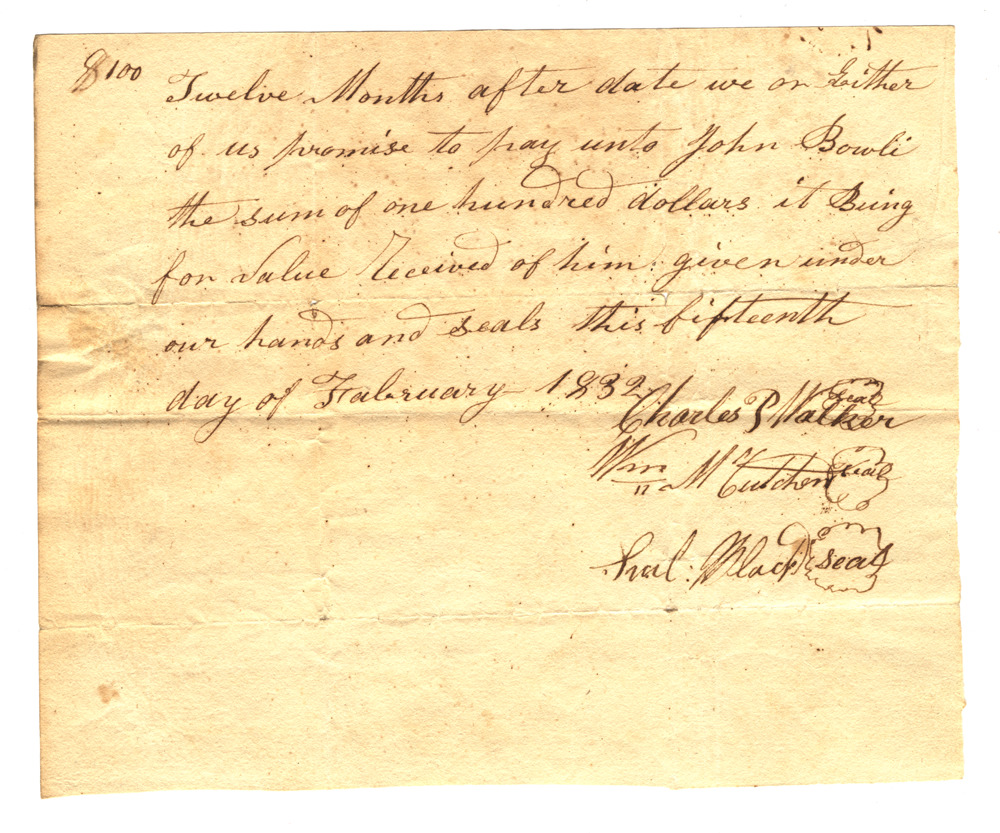 $100
Twelve Months after date we or Either
of us promise to pay unto John Bowli
the sum of one hundred dollars it Being
for value Received of him given under
our hands and seals this fifteenth
day of Fabruary 1832
Charles P Walker seal
Wm McCutchen seal
Black seal